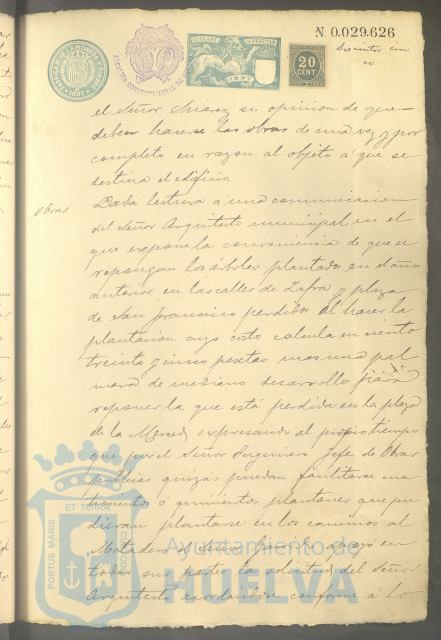 N. 0.029.626
20
CENT
1897
el Señor Suárez su opinion de que
deben hacerse las obras de una vez y por
completo en razon al objeto á que se
destina el edificio
Obras
Dada lectura á una comunicacion
del Señor Arquitecto municipal en el
que expone la conveniencia de que se
repongan los árboles plantados en el año
anterior en las calles de Zafra y plaza
de San Francisco perdidos al hacer la
plantacion cuyo costo calcula en ciento
treinta y cinco pesetas mas una pal
mera de mediano desarrollo para
reponer la que está perdida en la plaza
de la Merced, expresando al propio tiempo
que por el Señor Ingeniero Jefe de Obras
publicas quizas puedan facilitarse
ó quinientos plantones que pu
dieran plantarse en los caminos al
Matadero el Señor apoyó en
todas sus partes la solicitud del Señor
Arquitecto acordandose conforme á lo
PORTUS MARIS
ET TERRÆ
CUSTODIA
Ayuntamiento de
HUELVA